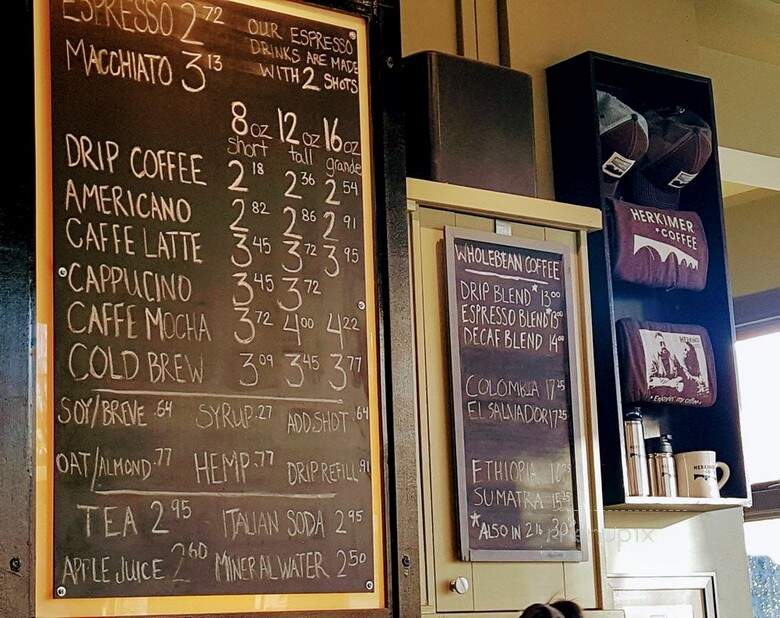 ESPRESSO 2 72
MACCHIATO 3 13
OUR ESPRESSO
DRINKS ARE MADE
WITH 2 SHOTS
8 oz 12 oz 16 oz
short tall grande
DRIP COFFEE 2 18 2 36 2 54
AMERICANO 2 82 2 86 2 91
CAFFE LATTE 3 45 3 72 3 95
CAPPUCINO 3 45 3 72
CAFFE MOCHA 3 72 4 00 4 22
COLD BREW 3 09 3 45 3 77
SOY/BREVE .64 SYRUP .27 ADD SHOT .64
OAT/ALMOND .77 HEMP .77 DRIP REFILL .91
TEA 2 95 ITALIAN SODA 2 95
APPLE JUICE 2 60 MINERAL WATER 2 50
WHOLEBEAN COFFEE
DRIP BLEND* 13 00
ESPRESSO BLEND* 13 00
DECAF BLEND 14 00
COLOMBIA 17 25
EL SALVADOR 17 25
ETHIOPIA
SUMATRA
*ALSO IN 2 lb
HERKIMER
COFFEE